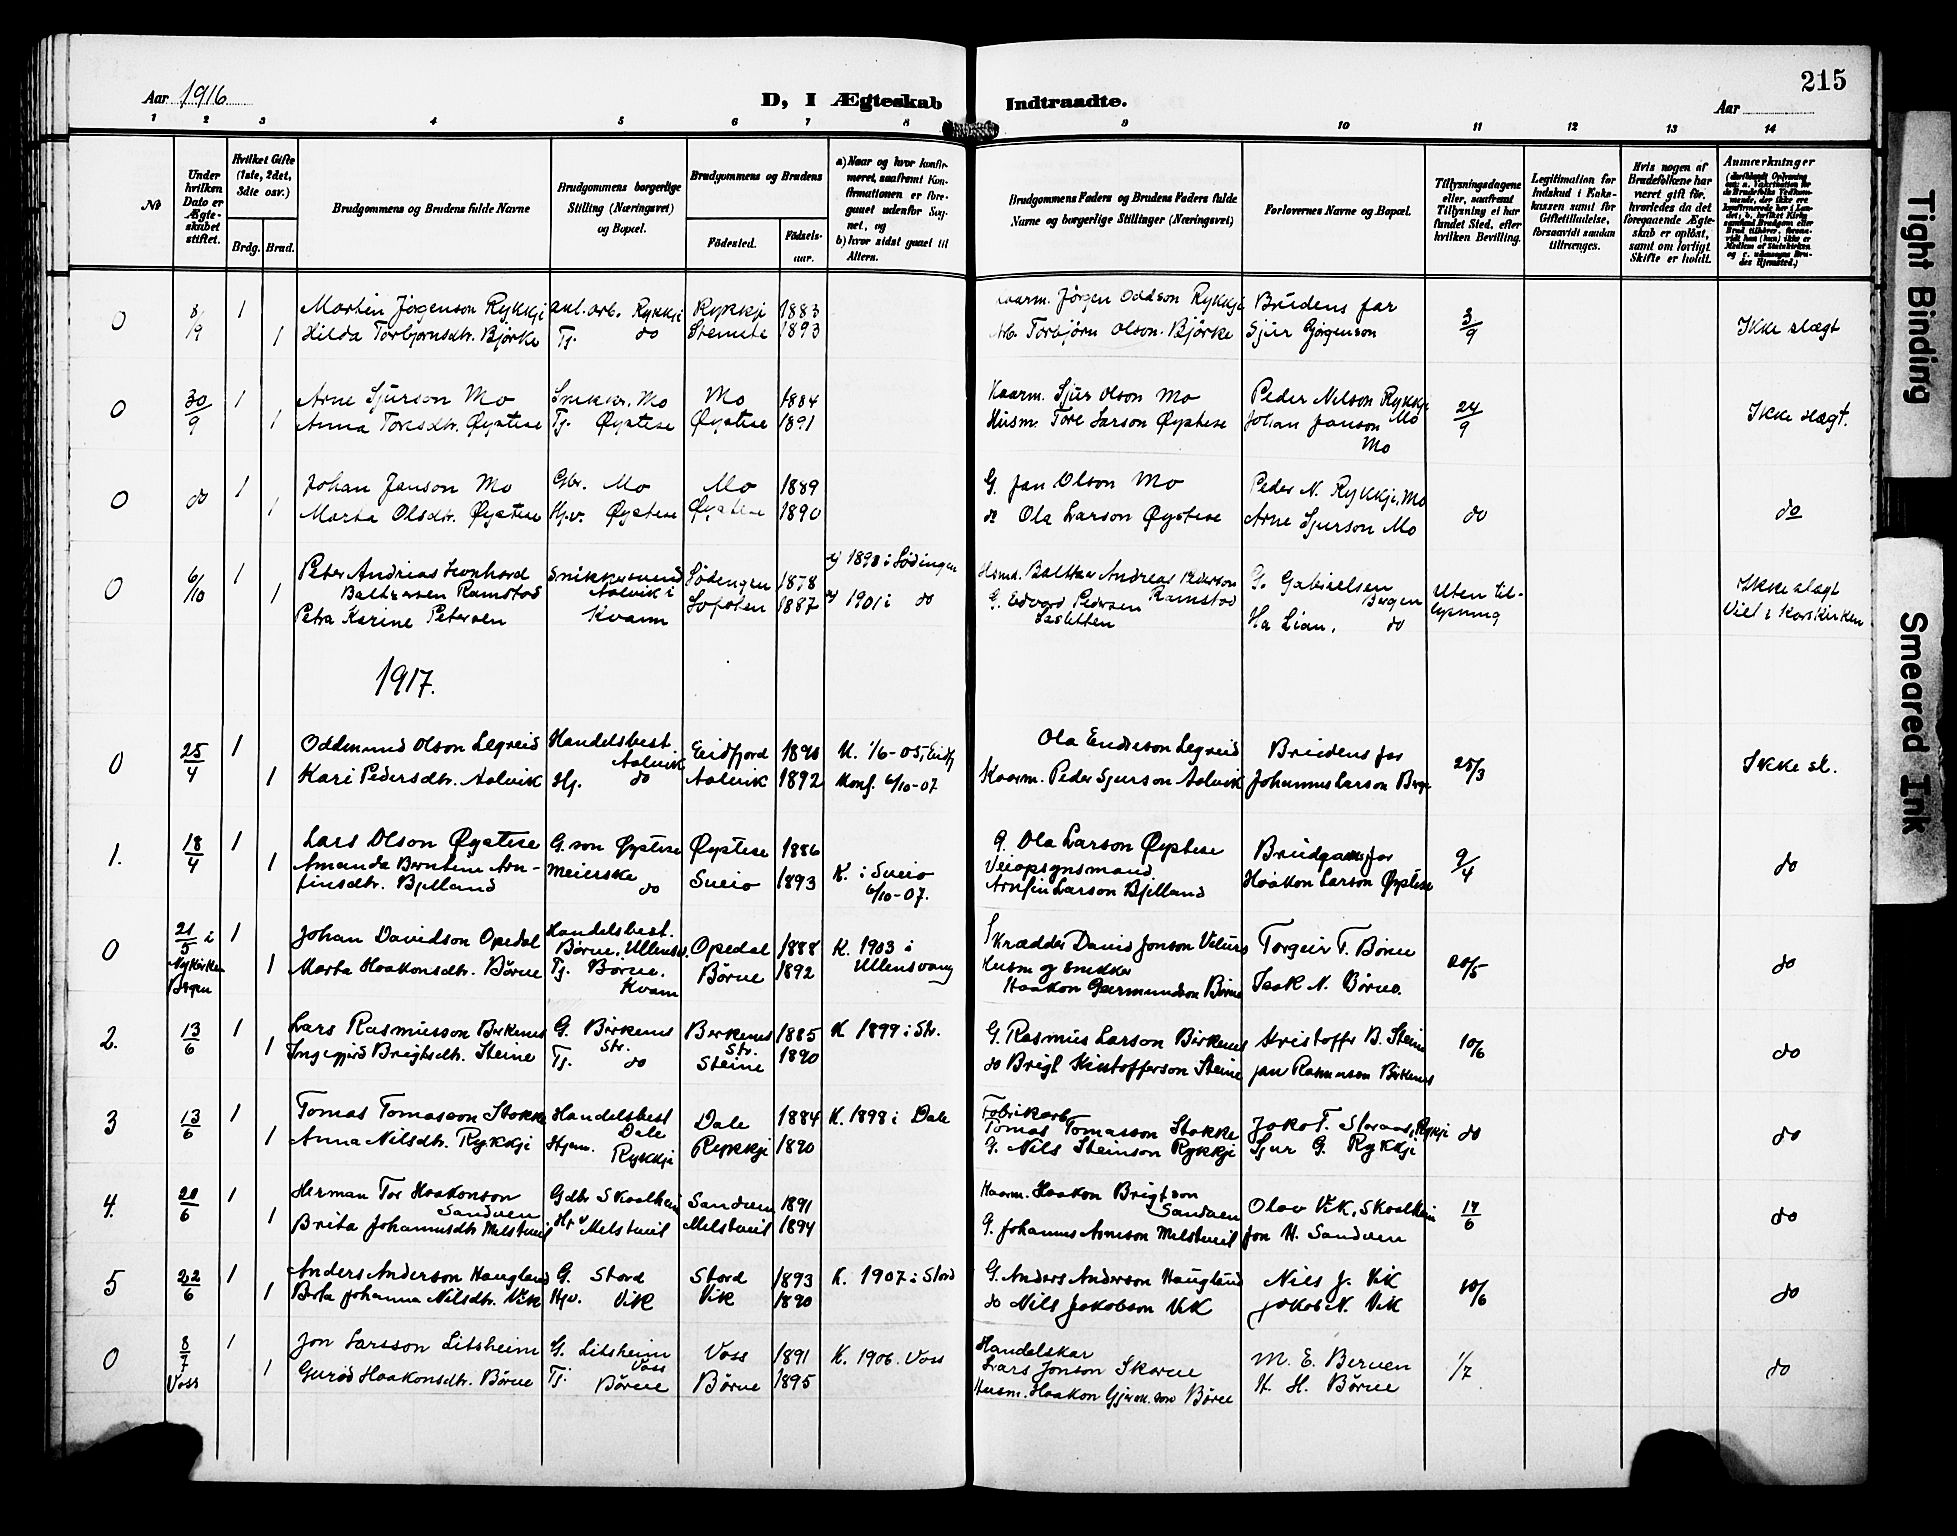 Aar 1916
D, I Ægteskab Indtraadte.
215
Aar
1 2 3 4 5 6 7 8 9 10 11 12 13 14
No
Under hvilken Dato er Ægteskabet stiftet.
Hvilket Gifte (1ste, 2det, 3die osv.)
Brdg. Brud.
Brudgommens og Brudens fulde Navne
Brudgommens borgerlige Stilling (Næringsvei) og Bopæl.
Brudgommens og Brudens
Fødested. Fødselsaar.
a) Naar og hvor konfirmeret, saafremt Konfirmationen er foregaaet udenfor Sognet, og
b) hvor sidst gaaet til Alters.
Brudgommens Faders og Brudens Faders fulde Navne og borgerlige Stillinger (Næringsvei)
Forlovernes Navne og Bopæl.
Tillysningsdagene eller, saafremt Tillysning ei har fundet Sted, efter hvilken Bevilling.
Legitimation for Indskud i Enkekassen samt for Giftetilladelse, forsaavidt saadan tiltrænges.
Hvis nogen af Brudefolkene har været gift før, hvorledes da det foregaaende Ægteskab er opløst, samt om lovligt Skifte er holdt.
Anmærkninger
0 8/9 1 Martin Jørgenson Rykkji anl. arb. Rykkji Rykkji 1883 Kaarm. Jørgen Oddson Rykkji Brudens far 3/9 Ikke slægt
1 Hilda Torbjørnsdtr. Bjørke Tj. do Steinstø 1893 Arb. Torbjørn Olson Bjørke Sjur Jørgenson
0 30/9 1 Arne Sjurson Mo Snikkar. Mo Mo 1884 Kaarm. Sjur Olson Mo Peder Nilson Rykkji Mo 24/9 Ikke slægt.
1 Anna Toresdtr. Øystese Tj. Øystese Øystese 1891 Husm. Tore Larson Øystese Johan Janson Mo
0 do 1 Johan Janson Mo Gbr. Mo Mo 1889 G. Jan Olson Mo Peder N. Rykkji, Mo do do
1 Marta Olsdtr. Øystese Hj.v. Øystese Øystese 1890 do Ola Larson Øystese Arne Sjurson Mo
0 6/10 1 Peter Andreas Leonhard Baltzersen Ramstad Snikkersvend Aalvik i Kvam Lødingen 1878 1893 i Lødingen G. Gabrielsen Bergen Uten tillysning Ikke slægt
1 Petra Karine Petersen Lofoten 1887 1901 i do G. Edvard Pedersen Ha Lian. do Viet i Korskirken
1917.
0 25/4 1 Oddmund Olson Legreid Handelsbest. Aalvik Eidfjord 1890 K. 1/6-05, Eidfj Ola Endreson Legreid Brudens far 25/3 Ikke sl.
1 Kari Pedersdtr. Aalvik Hj. do Aalvik 1892 Konf. 6/10-07 Kaarm. Peder Sjurson Aalvik Johannes Larson Berge
1. 18/4 1 Lars Olson Øystese G. søn Øystese Øystese 1886 G. Ola Larson Øystese Brudgams far 9/4 do
1 Amanda Berntine Arnfinsdtr. Bjelland Meierske do Sveio 1893 K. i Sveio 6/10-07. Veiopsynsmand Arnfin Larson Bjelland Haakon Larson Øystese
0 21/5 i Nykirken Bergen 1 Johan Davidson Opedal Handelsbest. Børve, Ullensv. Opedal 1888 K. 1903 i Ullensvang Skrædder David Jonson Velure Torgeir T. Børve 20/5 do
1 Marta Haakonsdtr. Børve Tj. Børve. Kvam Børve 1892 Husm og snikker Haakon Geirmundson Børve Isak N. Børve.
2. 13/6 1 Lars Rasmusson Birkenes G. Birkenes Str. Birkenes Str. 1885 K 1899 i Str. G. Rasmus Larson Birkenes Kristoffer B. Steine 10/6 do
1 Ingegjerd Brigtsdtr. Steine Tj. do Steine 1890 do Brigt Kristofferson Steine Jan Rasmusson Birkenes
3 13/6 1 Tomas Tomasson Stokke Handelsbest Dale Dale 1884 K. 1898 i Dale Fabrikarb Tomas Tomasson Stokke Jako T. Storaas, Rykkji do do
1 Anna Nilsdtr. Rykkji Hjem. Rykkji Rykkji 1890 G. Nils Steinson Rykkji Sjur G. Rykkji
4. 20/6 1 Herman Tor Haakonson Sandven Gdbr Skaalheim Sandven 1891 Kaarm. Haakon Brigtson Sandven Olav Vik, Skaalheim 17/6 do
1 Brita Johannesdtr Melstveit Hj v Melstveit Melstveit 1894 G. Johannes Arneson Melstveit Jon H. Sandven
5 22/6 1 Anders Anderson Haugland G. Stord Stord 1893 K. 1907 i Stord G. Anders Anderson Haugland Nils J. Vik 10/6 do
1 Brita Johanna Nilsdtr. Vik Hjv. Vik Vik 1890 do Nils Jakobson Vik Jakob N. Vik
0 8/7 Voss 1 Jon Larsson Litsheim G. Litsheim Voss Voss 1891 K. 1906. Voss Handelskar Lars Jonson Skorve M. E. Berven 1/7 do
1 Gurid Haakonsdtr. Børve Tj. Børve Børve 1895 Husm. Haakon Børve H. H. Børve
Tight Binding
Smeared Ink